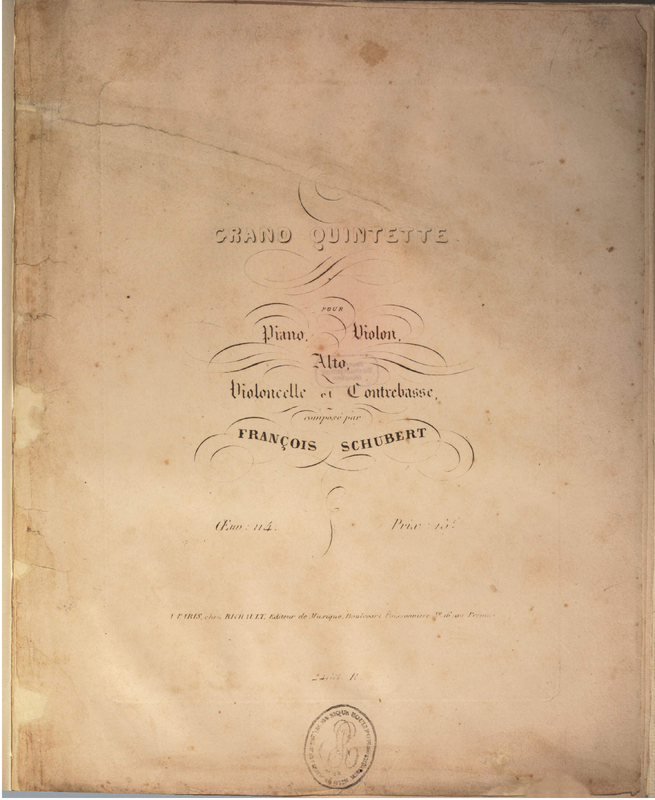 GRAND QUINTETTE
POUR
Piano, Violon,
Alto,
Violoncelle et Contrebasse,
composé par
FRANÇOIS SCHUBERT
Œuv: 114. Prix: 15f
A PARIS, chez RICHAULT, Editeur de Musique, Boulevard Poissonnière, au Premier
R.